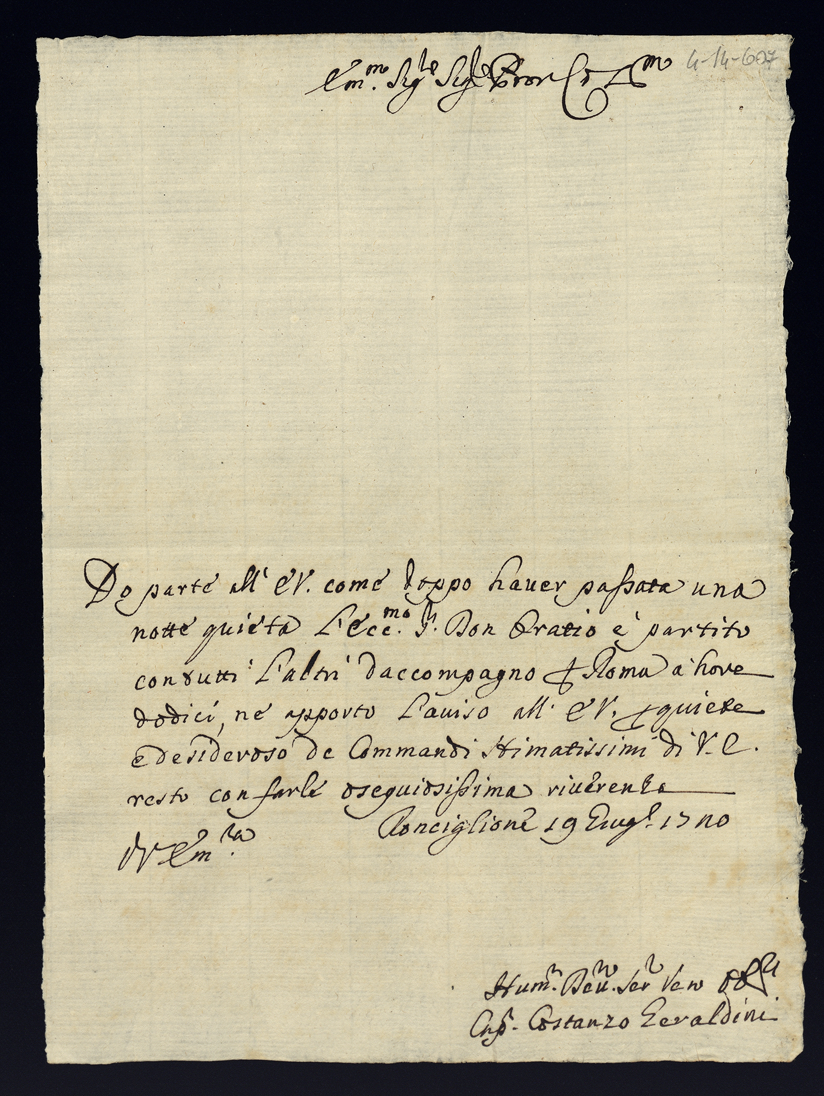 4-14-607
Em.mo Sig.re Sig.re Pron Col.mo
Do parte all' EV. come doppo haver passata una
notte quieta L'Ecc.mo S.r Don Oratio è partito
con tutti l'altri d'accompagno p Roma a hore
dodici, ne apporto l'aviso all' EV. p quiete
e desideroso de Commandi stimatissimi di V.E.
resto con farle osequiosissima riverenza
Ronciglione 19 Giug.o
Di V Em.za
Hum.o Dev.o Ser.r Vero
Cap. Costanzo Geraldini